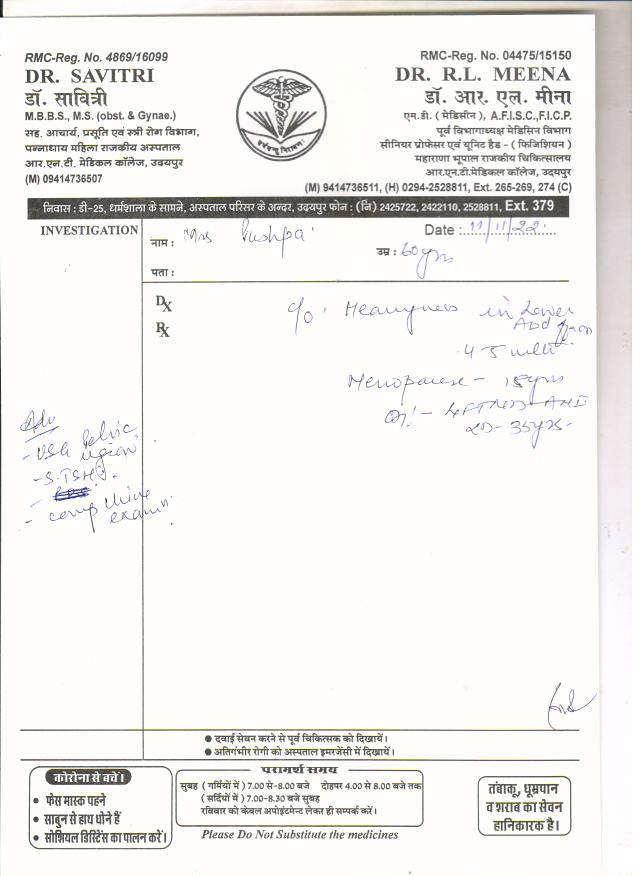 RMC-Reg. No. 4869/16099
DR. SAVITRI
डॉ. सावित्री
M.B.B.S., M.S. (obst. & Gynae.)
सह. आचार्य, प्रसूति एवं स्त्री रोग विभाग,
पन्नाधाय महिला राजकीय अस्पताल
आर.एन.टी. मेडिकल कॉलेज, उदयपुर
(M) 09414736507
RMC-Reg. No. 04475/15150
DR. R.L. MEENA
डॉ. आर. एल. मीना
एम.डी. ( मेडिसीन ), A.F.I.SC.,F.I.C.P.
पूर्व विभागाध्यक्ष मेडिसिन विभाग
सीनियर प्रोफेसर एवं यूनिट हैड - ( फिजिशियन )
महाराणा भूपाल राजकीय चिकित्सालय
आर.एन.टी.मेडिकल कॉलेज, उदयपुर
(M) 9414736511, (H) 0294-2528811, Ext. 265-269, 274 (C)
निवास : डी-25, धर्मशाला के सामने, अस्पताल परिसर के अन्दर, उदयपुर फोन : (नि) 2425722, 2422110, 2528811, Ext. 379
INVESTIGATION
नाम : Mrs Pushpa
Date : 11/11/22
उम्र : 60yrs
पता :
Dx
Rx
c/o: Heavyness in Lower
Abd
4-5
Menopause - 15yrs
35yrs.
Adv
- USG Pelvic
region
- S.TSH
- comp Urine
exam
● दवाई सेवन करने से पूर्व चिकित्सक को दिखायें।
● अतिगंभीर रोगी को अस्पताल इमरजेंसी में दिखायें।
कोरोना से बचें।
● फेस मास्क पहने
● साबुन से हाथ धोने हैं
● सोशियल डिस्टेंस का पालन करें।
परामर्श समय
सुबह ( गर्मियों में ) 7.00 से-8.00 बजे दोहपर 4.00 से 8.00 बजे तक
( सर्दियों में ) 7.00-8.30 बजे सुबह
रविवार को केवल अपोइंटमेन्ट लेकर ही सम्पर्क करें।
Please Do Not Substitute the medicines
तंबाकू, धूम्रपान
व शराब का सेवन
हानिकारक है।